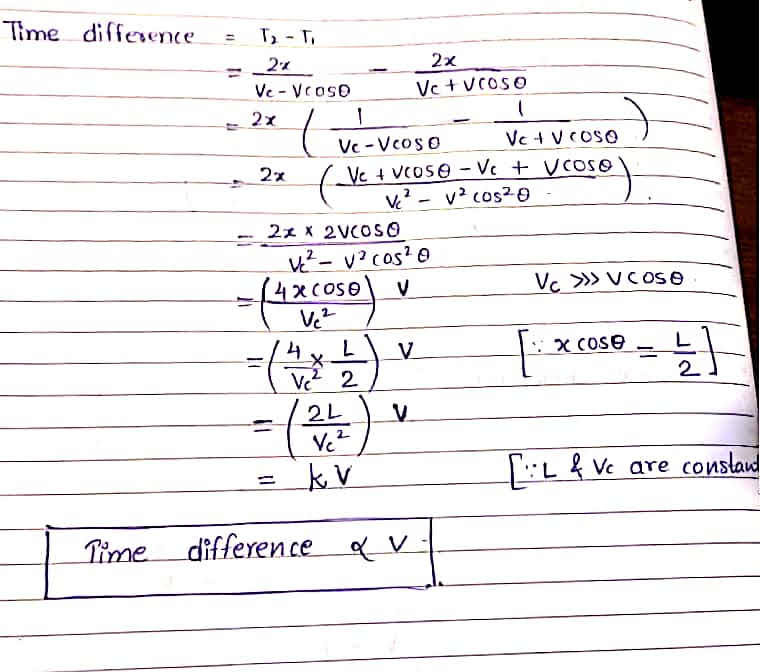 Time difference = T₂ - T₁
= 2x / (Vc - Vcosθ) - 2x / (Vc + Vcosθ)
= 2x ( 1 / (Vc - Vcosθ) - 1 / (Vc + Vcosθ) )
= 2x ( (Vc + Vcosθ - Vc + Vcosθ) / (Vc² - V²cos²θ) ).
= 2x × 2Vcosθ / (Vc² - V²cos²θ)
= ( 4xcosθ / Vc² ) V    Vc >>> Vcosθ
= ( 4 / Vc² × L / 2 ) V    [∵ xcosθ = L / 2 ]
= ( 2L / Vc² ) V
= kV    [∵ L & Vc are constant
Time difference ∝ V